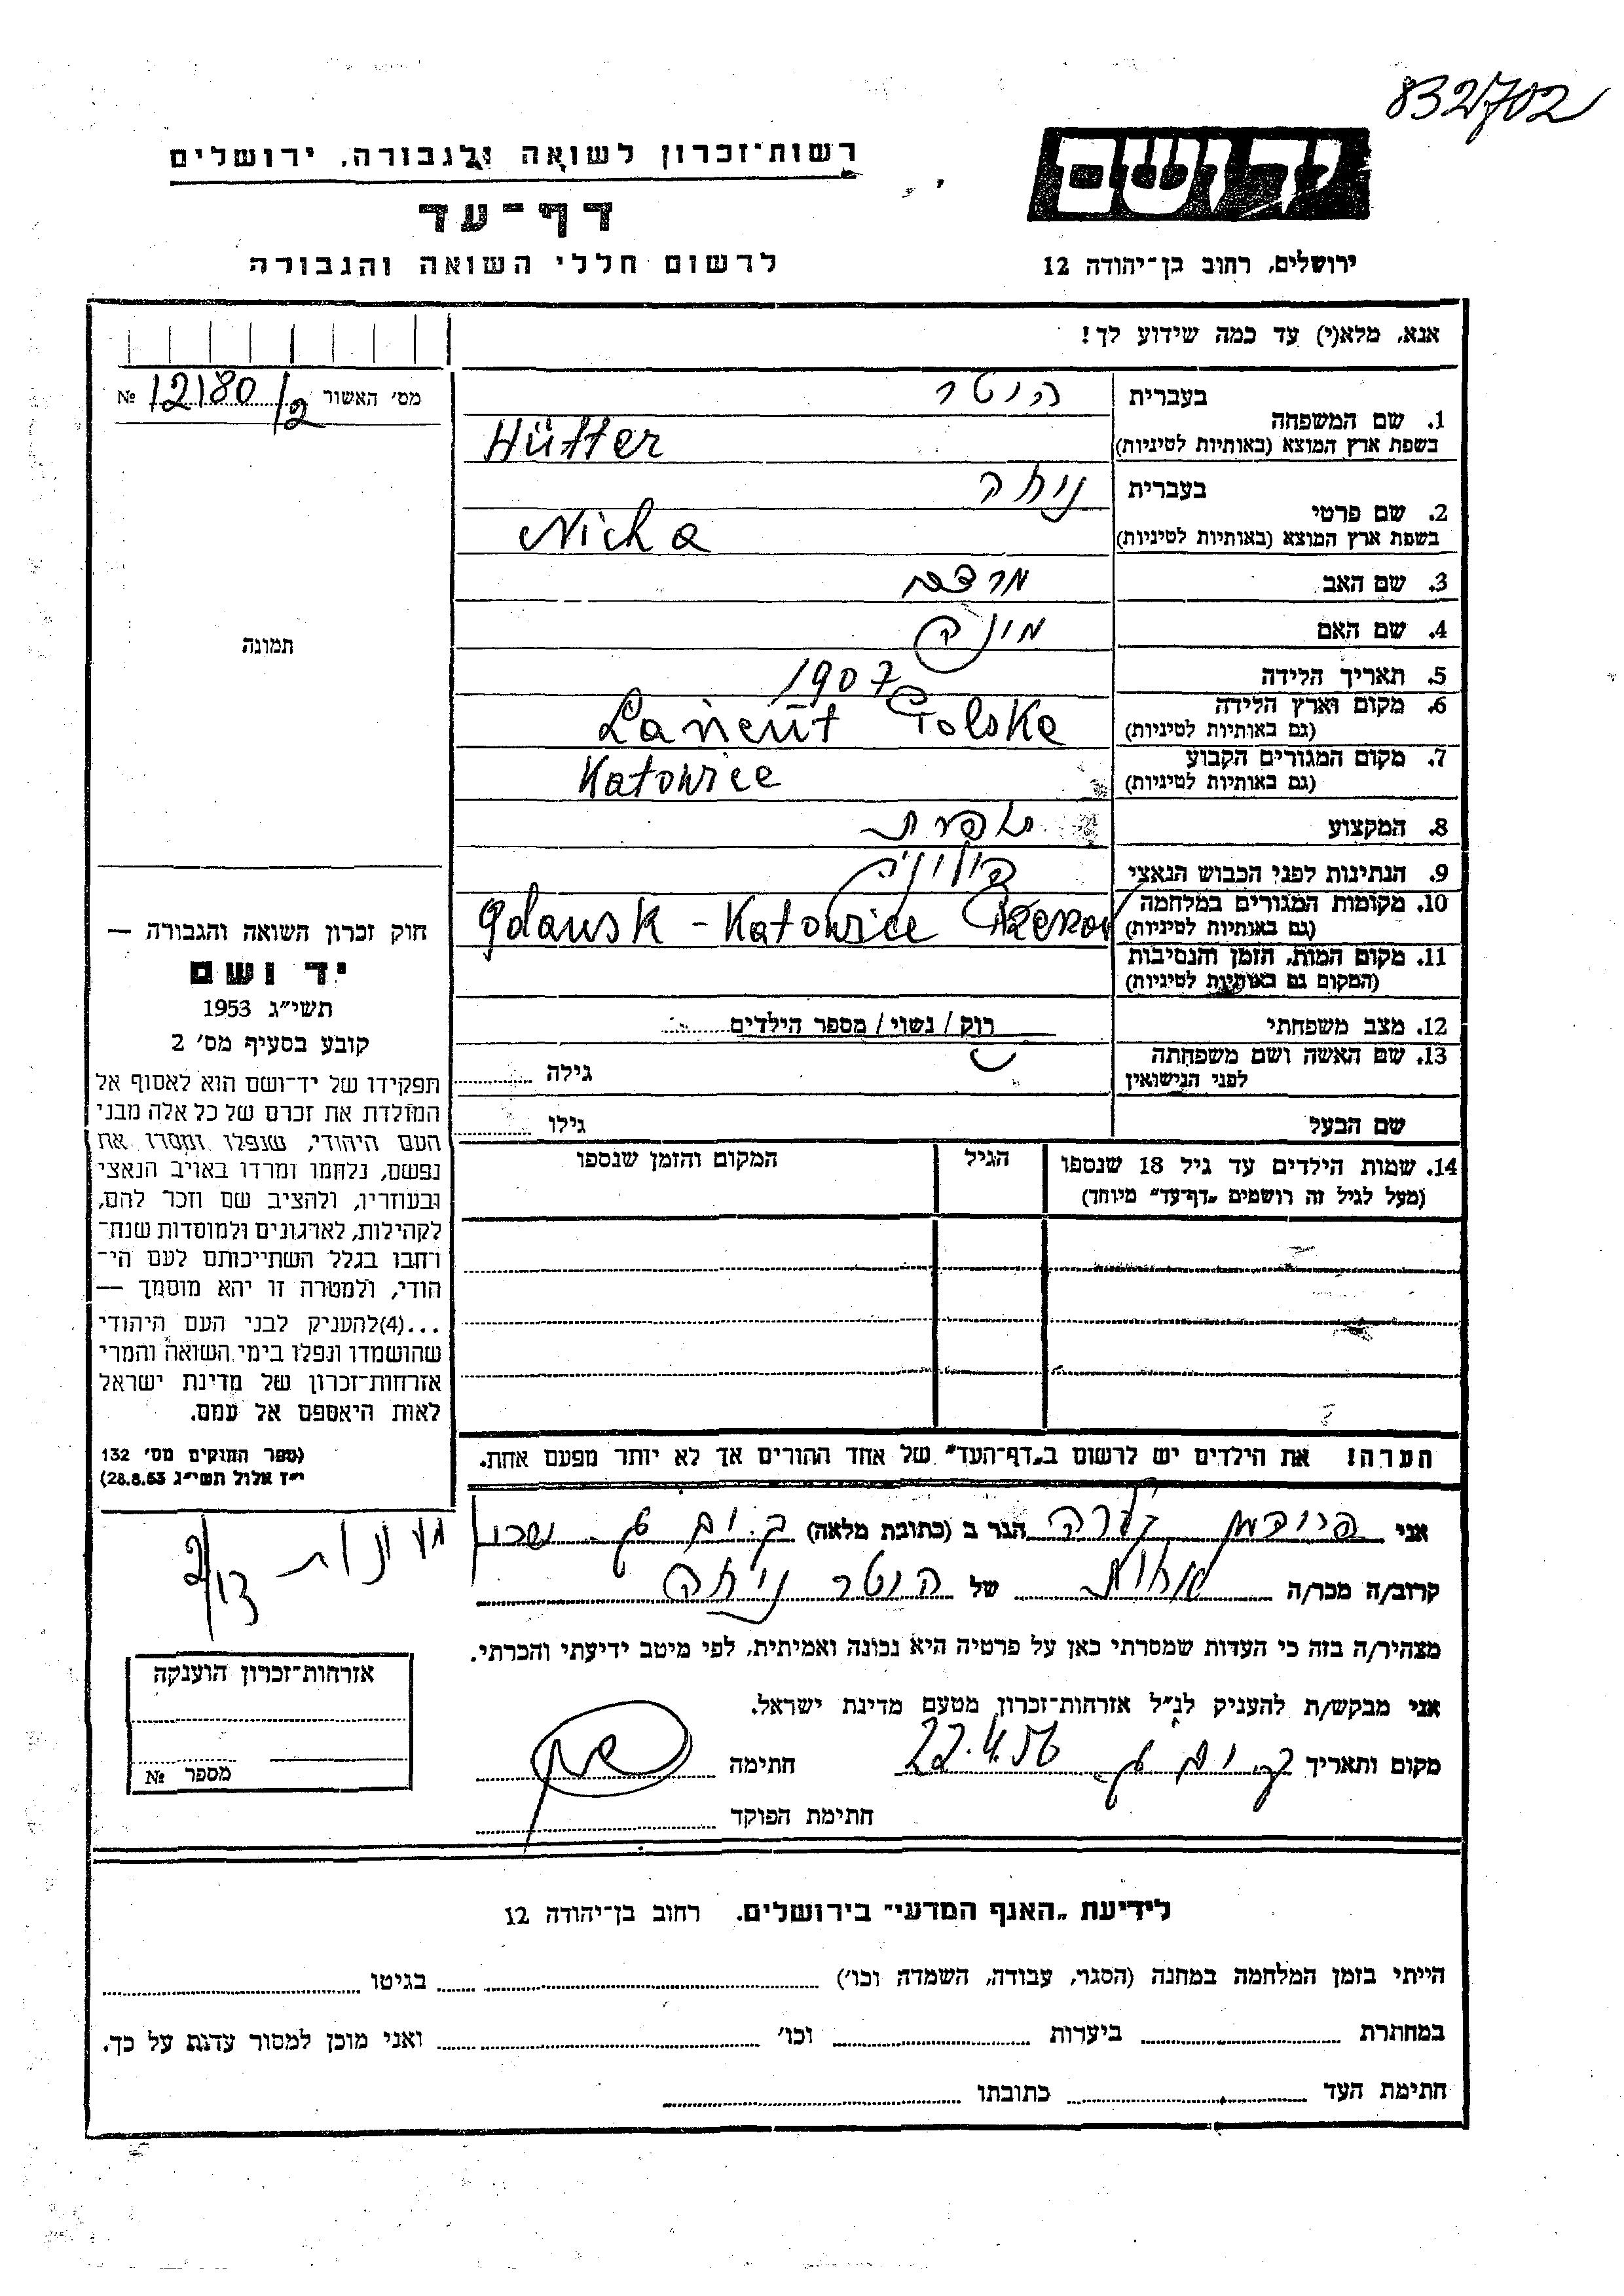 832702
ידושם
רשות־זכרון לשואה ולגבורה, ירושלים
דף־עד
לרשום חללי השואה והגבורה
ירושלים, רחוב בן־יהודה 12
אנא, מלא(י) עד כמה שידוע לך!
מס׳ האשור № 12180/2
תמונה
1. שם המשפחה
בעברית הוטר
בשפת ארץ המוצא (באותיות לטיניות) Hütter
2. שם פרטי
בעברית ניחה
בשפת ארץ המוצא (באותיות לטיניות) Nicha
3. שם האב מרדכי
4. שם האם
5. תאריך הלידה 1907
6. מקום וארץ הלידה
(גם באותיות לטיניות) Lańcut Polska
7. מקום המגורים הקבוע
(גם באותיות לטיניות) Katowice
8. המקצוע תופרת
9. הנתינות לפני הכבוש הנאצי פולניה
10. מקומות המגורים במלחמה
(גם באותיות לטיניות) Gdansk - Katowice
11. מקום המות, הזמן והנסיבות
(המקום גם באותיות לטיניות)
12. מצב משפחתי רוק / נשוי / מספר הילדים
13. שם האשה ושם משפחתה
לפני הנישואין גילה
שם הבעל גילו
14. שמות הילדים עד גיל 18 שנספו
(מעל לגיל זה רושמים „דף־עד״ מיוחד)
הגיל
המקום והזמן שנספו
חוק זכרון השואה והגבורה —
יד ושם
תשי״ג 1953
קובע בסעיף מס׳ 2
תפקידו של יד־ושם הוא לאסוף אל
המולדת את זכרם של כל אלה מבני
העם היהודי, שנפלו ומסרו את
נפשם, נלחמו ומרדו באויב הנאצי
ובעוזריו, ולהציב שם וזכר להם,
לקהילות, לארגונים ולמוסדות שנח־
רחבו בגלל השתייכותם לעם הי־
הודי, ולמטרה זו יהא מוסמך —
...(4)להעניק לבני העם היהודי
שהושמדו ונפלו בימי השואה והמרי
אזרחות־זכרון של מדינת ישראל
לאות היאספם אל עמם.
(ספר החוקים מס׳ 132
י״ז אלול תשי״ג 28.8.53)
הערה! את הילדים יש לרשום ב„דף־העד״ של אחד ההורים אך לא יותר מפעם אחת.
אני פרידמן קלרה הגר ב (כתובת מלאה) ק. ים
קרוב/ה מכר/ה אחות של הוטר ניחה
מצהיר/ה בזה כי העדות שמסרתי כאן על פרטיה היא נכונה ואמיתית, לפי מיטב ידיעתי והכרתי.
אני מבקש/ת להעניק לנ״ל אזרחות־זכרון מטעם מדינת ישראל.
מקום ותאריך ק. ים 22.4.56 חתימה
חתימת הפוקד
אזרחות־זכרון הוענקה
מספר №
לידיעת „האגף המדעי״ בירושלים, רחוב בן־יהודה 12
הייתי בזמן המלחמה במחנה (הסגר, עבודה, השמדה וכו׳) בגיטו
במחתרת ביערות וכו׳ ואני מוכן למסור עדות על כך.
חתימת העד כתובתו